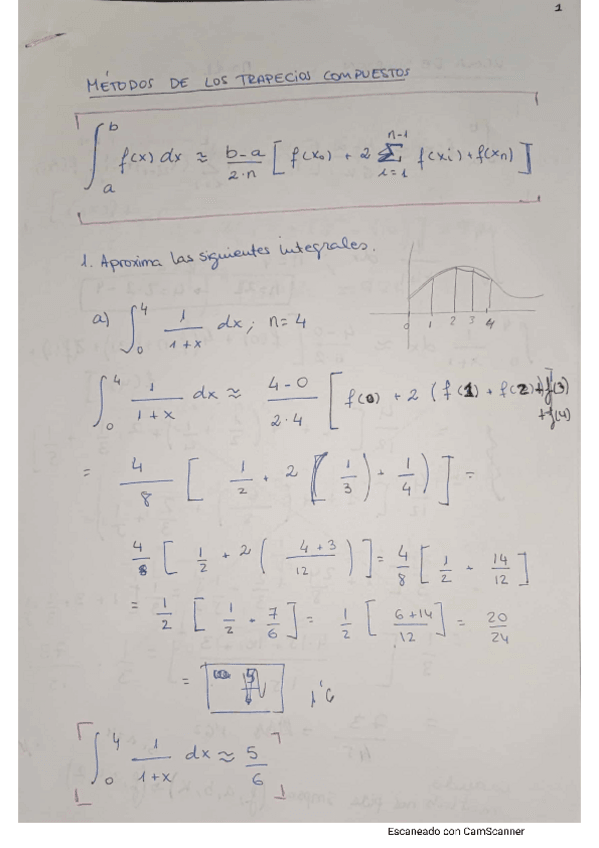 1
MÉTODOS DE LOS TRAPECIOS COMPUESTOS
∫_a^b f(x) dx ≈ (b-a)/(2·n) [ f(x₀) + 2 ∑_{i=1}^{n-1} f(xi) + f(xn) ]
1. Aproxima las siguientes integrales.
a) ∫_0^4 1/(1+x) dx; n=4
0 1 2 3 4
∫_0^4 1/(1+x) dx ≈ (4-0)/(2·4) [ f(0) + 2 ( f(1) + f(2) + f(3)
+ f(4)
= 4/8 [ 1/2 + 2 ( 1/3 ) + 1/4 ) ] =
4/8 [ 1/2 + 2 ( (4+3)/12 ) ] = 4/8 [ 1/2 + 14/12 ]
= 1/2 [ 1/2 + 7/6 ] = 1/2 [ (6+14)/12 ] = 20/24
=
∫_0^4 1/(1+x) dx ≈ 5/6
Escaneado con CamScanner